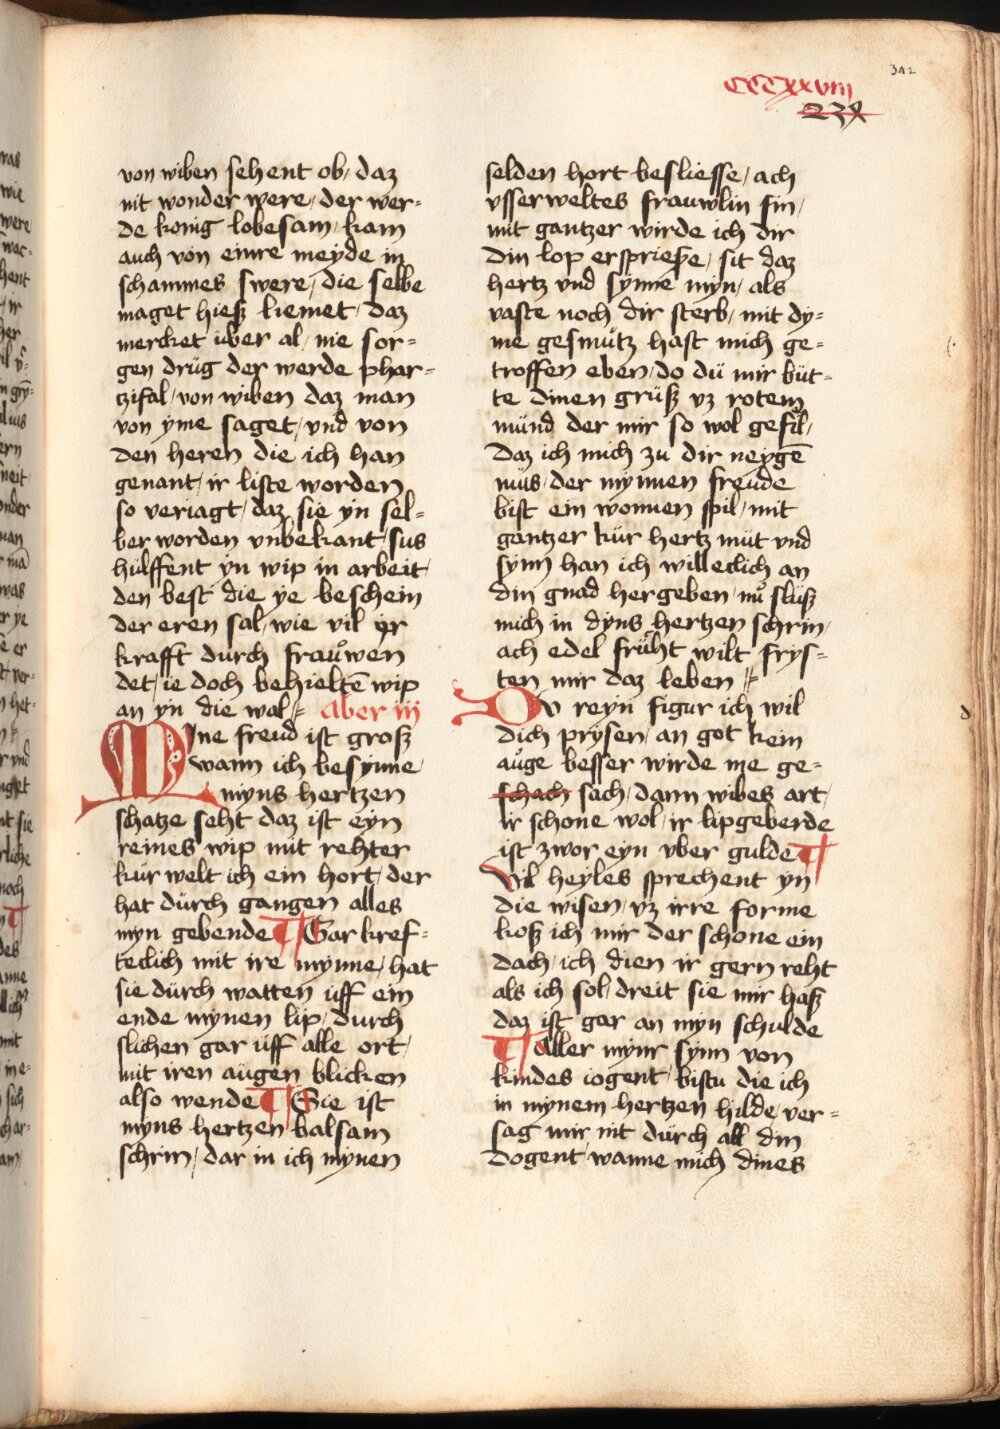 342
CCCXXVIII
23X
von wiben sehent ob / daz
nit wonder were / der wer-
de konig lobesam / kam
auch von einre meyde in
schammes swere / die selbe
maget hiesz liemet / daz
mercket uber al / nie sor-
gen drüg der werde phar-
tzifal / von wiben daz man
von yme saget / vnd von
den heren die ich han
genant / ir liste worden
so veriagt / daz sie yn sel-
ber worden vnbekant / sus
hülffent yn wip in arbeit /
den best die ye beschein
der eren sal / wie vil ir
krafft durch frauwen
det / ie doch behieltē wip
an yn die wal // Aber iij
MIne freud ist grosz
wann ich besynne /
myns hertzen
schatze seht daz ist eyn
reines wip mit rehter
kür welt ich ein hort / der
hat dürch gangen alles
myn gebende ¶ Gar kref-
teclich mit ire mynne / hat
sie dürch watten uff ein
ende mynen lip / durch
slichen gar uff alle ort /
mit iren augen blicken
also wende ¶ Sie ist
myns hertzen balsam
schrin / dar in ich mynen
selden hort besliesse / ach
vsserweltes frauwlin fin /
mit gantzer wirde ich dir
din lop erspriesze / sit daz
hertz vnd synne myn / als
vaste noch dir sterb / mit dy-
me gesmütz hast mich ge-
troffen eben / do dü mir büt-
te dinen grüsz vz rotem
münd der mir so wol gefil /
daz ich mich zu dir neygē
müs / der mynnen freude
bist ein wonnen spil / mit
gantzer kür hertz müt vnd
synn han ich willeclich an
din gnad hergeben / nu slüsz
mich in dyns hertzen schrin /
ach edel früht wilt frys-
ten mir daz leben //
DV reyn figur ich wil
dich prysen / an got kein
auge besser wirde nie ge-
schach sach / dann wibes art /
ir schone wol / ir lipgeberde
ist zwor eyn vber gulde ¶
Vil heyles sprechent yn
die wisen / vz irre forme
kosz ich mir der schone ein
dach / ich dien ir gern reht
als ich sol / dreit sie mir hasz
daz ist gar an myn schulde
¶ Aller mynr synn von
kindes iogent / bistu die ich
in mynem hertzen hilde / ver-
sag mir nit dürch all din
dogent / wanne mich dines